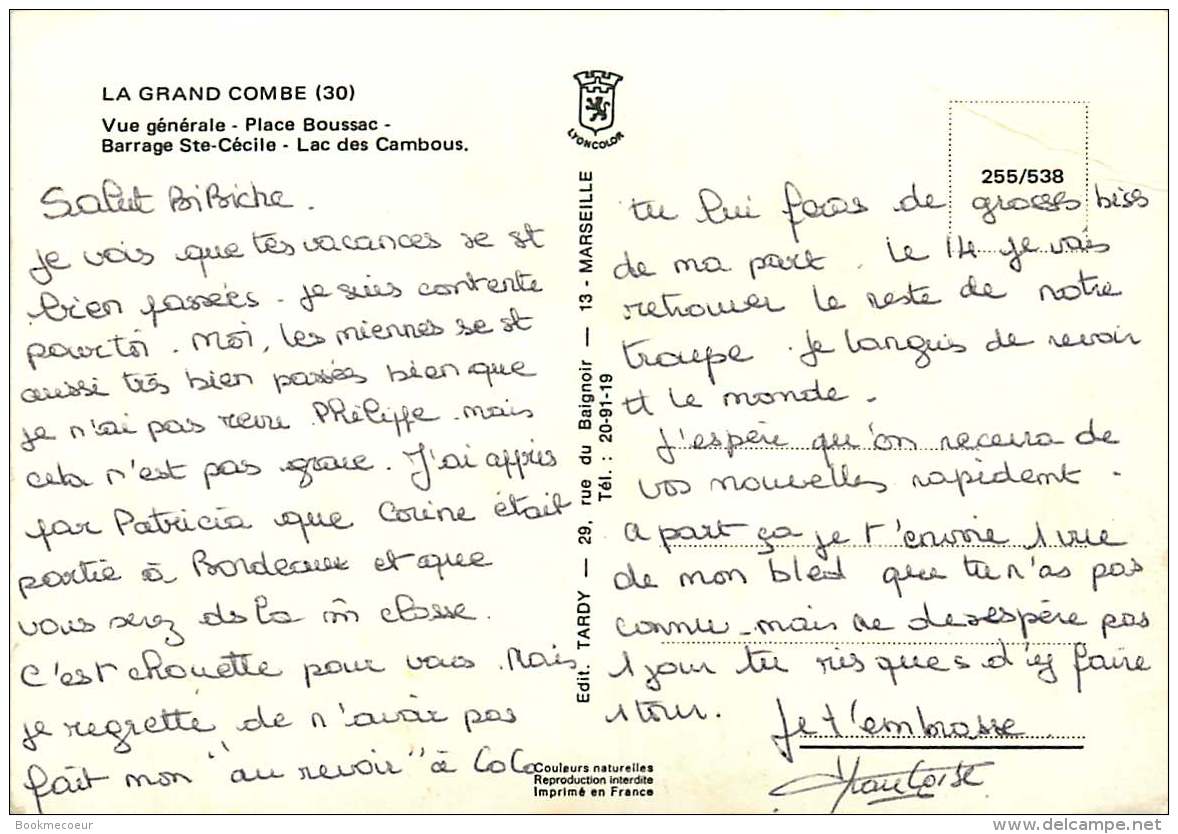 LA GRAND COMBE (30)
Vue générale - Place Boussac -
Barrage Ste-Cécile - Lac des Cambous.
Salut BiBiche.
je vois que tes vacances se st
bien passées. Je suis contente
pour toi. Moi, les miennes se st
aussi très bien passées bien que
je n'ai pas revu Philippe. mais
cela n'est pas grave. J'ai appris
par Patricia que Corine était
partie à Bordeaux et que
vous serez ds la m̂ classe.
C'est chouette pour vous. Mais
je regrette de n'avoir pas
fait mon "au revoir" à CoCo
LYONCOLOR
Edit. TARDY — 29, rue du Baignoir — 13 - MARSEILLE
Tél. : 20-91-19
Couleurs naturelles
Reproduction interdite
Imprimé en France
255/538
tu lui feras de grosses biss
de ma part. Le 14 je vais
retrouver le reste de notre
troupe. Je languis de revoir
tt le monde.
J'espère qu'on recevra de
vos nouvelles rapidemt.
A part ça je t'envoie 1 vue
de mon bled que tu n'as pas
connu - mais ne desespère pas
1 jour tu risques d'y faire
1 tour.
Je t'embrasse.
Françoise
Bookmecoeur
delcampe.net